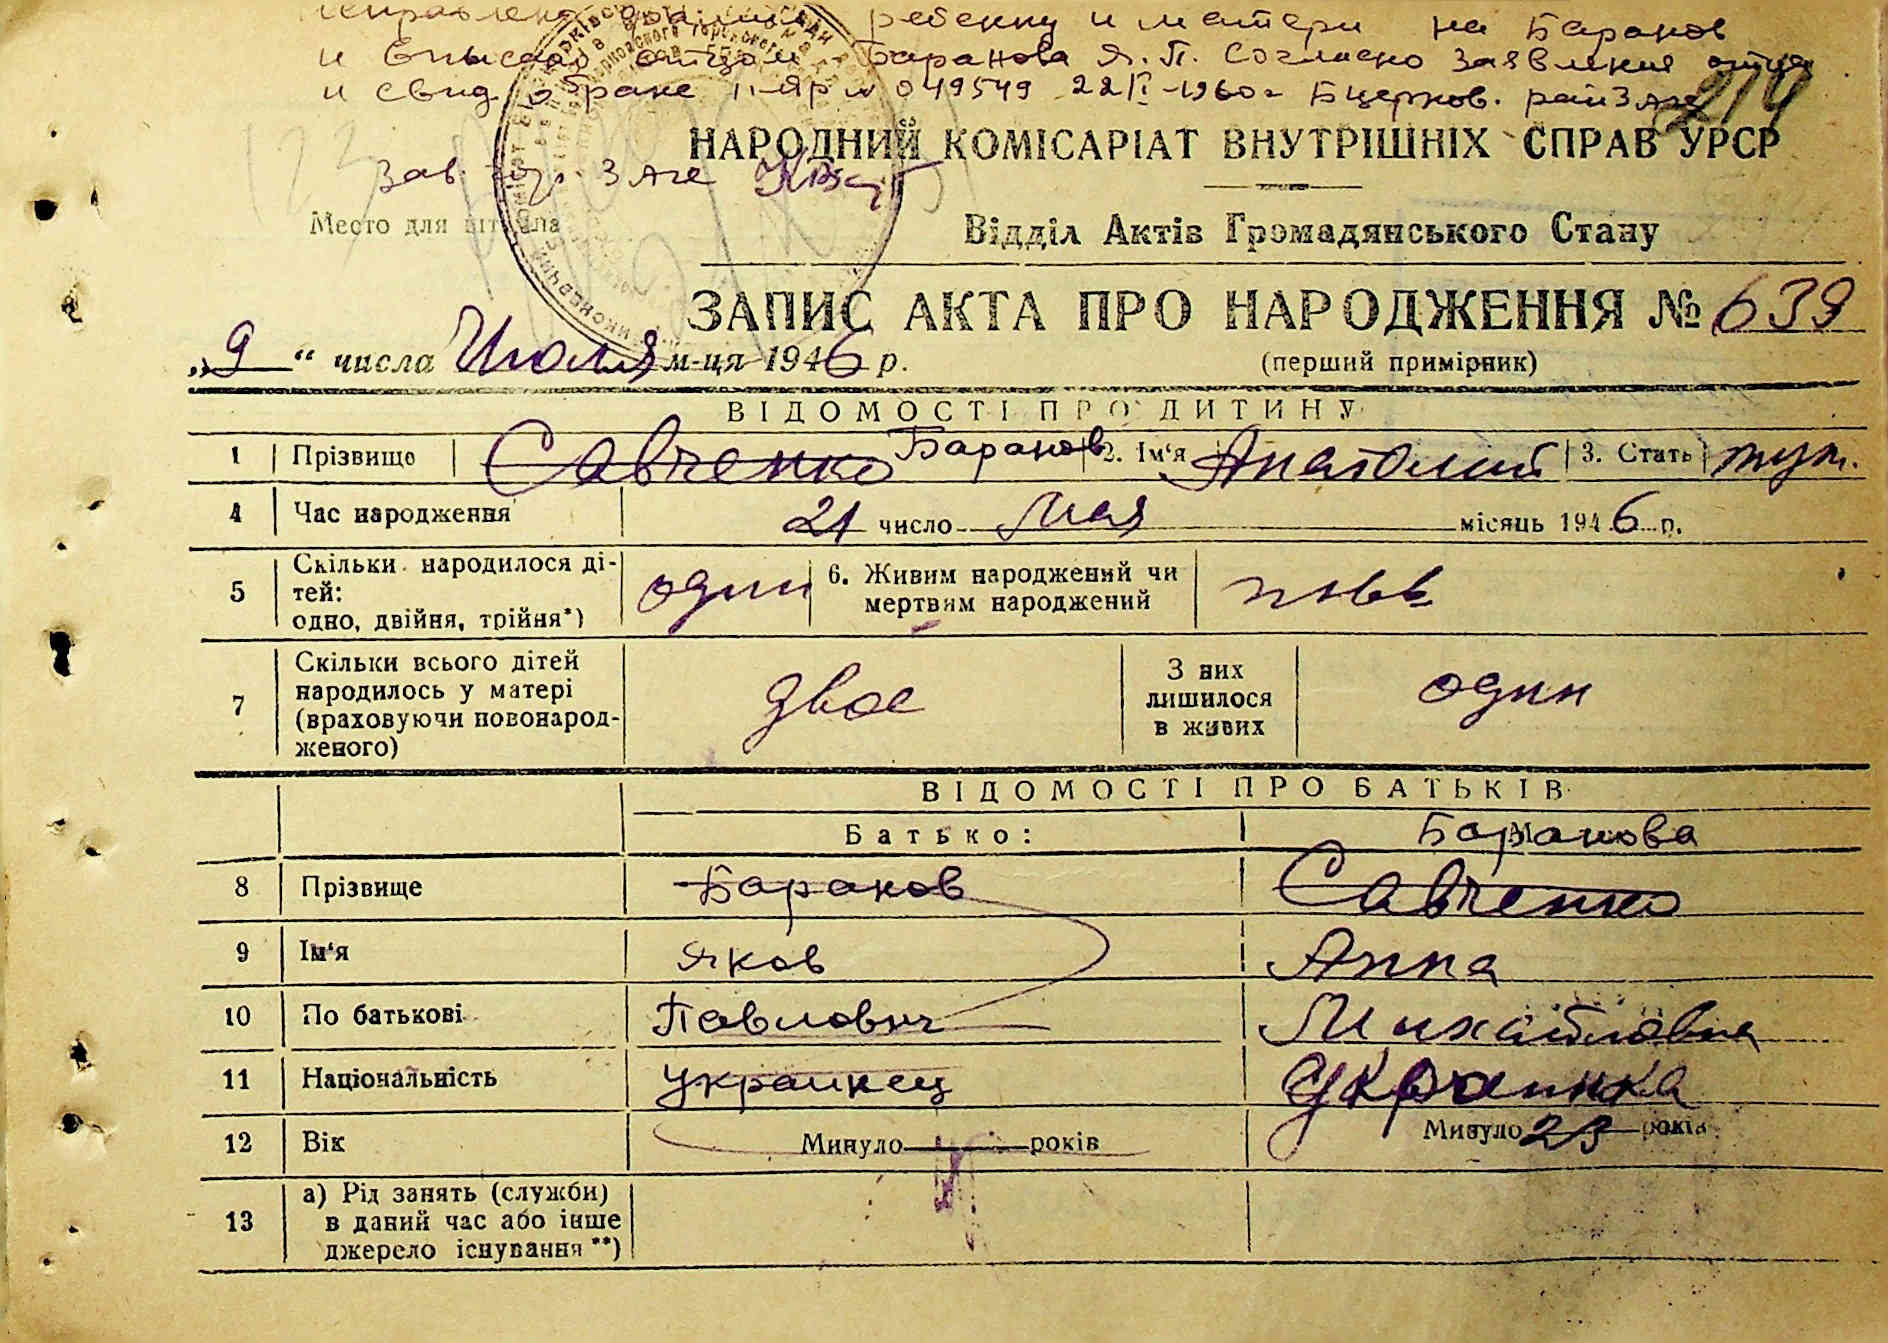 ребенку и матери на Баранов
и вписан отцом Баранова Я.П. Согласно заявления отца
и свид. о браке II-ЯР № 049549 22/I-1960г Бцерков. райЗАГС
214
123
НАРОДНИЙ КОМІСАРІАТ ВНУТРІШНІХ СПРАВ УРСР
Зав. гор. ЗАГС
Место для штемпеля
Відділ Актів Громадянського Стану
ЗАПИС АКТА ПРО НАРОДЖЕННЯ № 639
„9“ числа Июля м-ця 1946 р.
(перший примірник)
ВІДОМОСТІ ПРО ДИТИНУ
1 Прізвище Савченко Баранов 2. Ім'я Анатолий 3. Стать муж.
4 Час народження 21 число Мая місяць 1946 р.
5 Скільки народилося ді-
тей:
одно, двійня, трійня*) один 6. Живим народжений чи
мертвим народжений
7 Скільки всього дітей
народилось у матері
(враховуючи новонарод-
женого) двое З них
лишилося
в живих один
ВІДОМОСТІ ПРО БАТЬКІВ
Батько: Баранова
8 Прізвище Баранов Савченко
9 Ім'я Яков Анна
10 По батькові Павлович Михайловна
11 Національність Украинец Украинка
12 Вік Минуло років Минуло 23 років
13 а) Рід занять (служби)
в даний час або інше
джерело існування **)